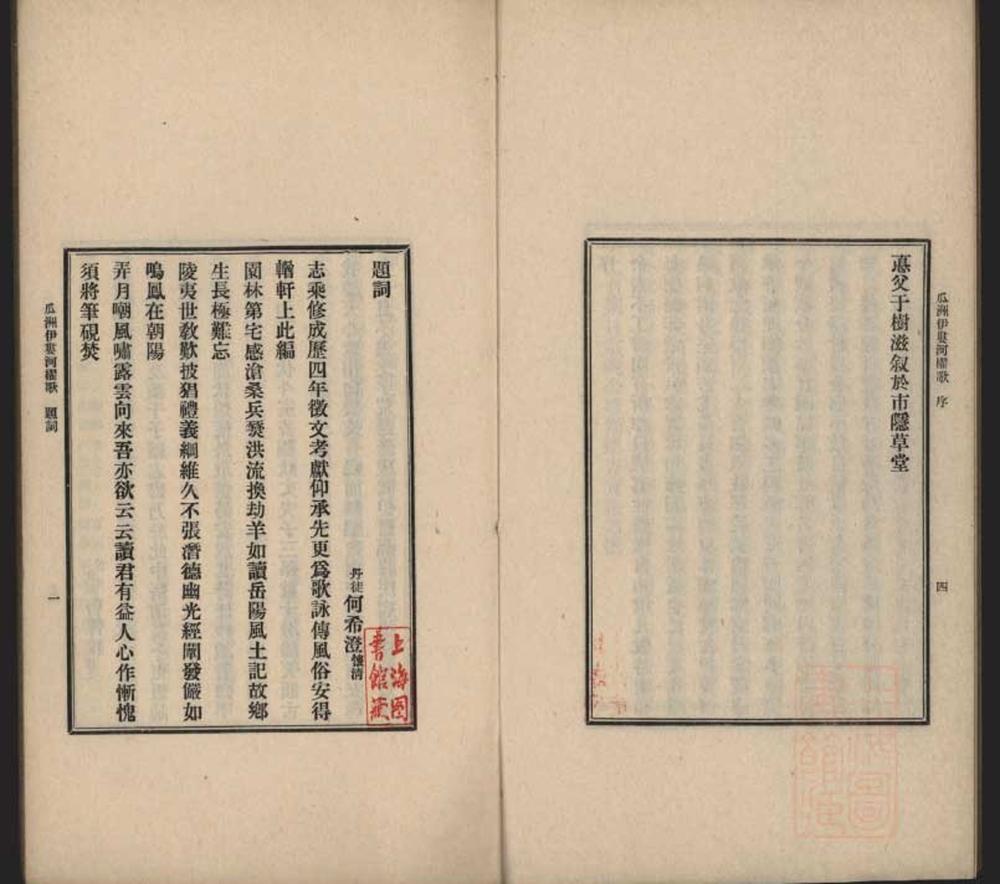 瓜洲伊婁河櫂歌 序
四
惪父于樹滋叙於市隱草堂
題詞
丹徒何希澄懷清
志乘修成歷四年徵文考獻仰承先更爲歌詠傳風俗安得
輶軒上此編
園林第宅感滄桑兵燹洪流換劫羊如讀岳陽風土記故鄉
生長極難忘
陵夷世敎歎披猖禮義綱維久不張濳德幽光經闡發儼如
鳴鳳在朝陽
弄月嘲風嘯露雲向來吾亦欲云云讀君有益人心作慚愧
須將筆硯焚
瓜洲伊婁河櫂歌 題詞
一
上海圖
書館藏